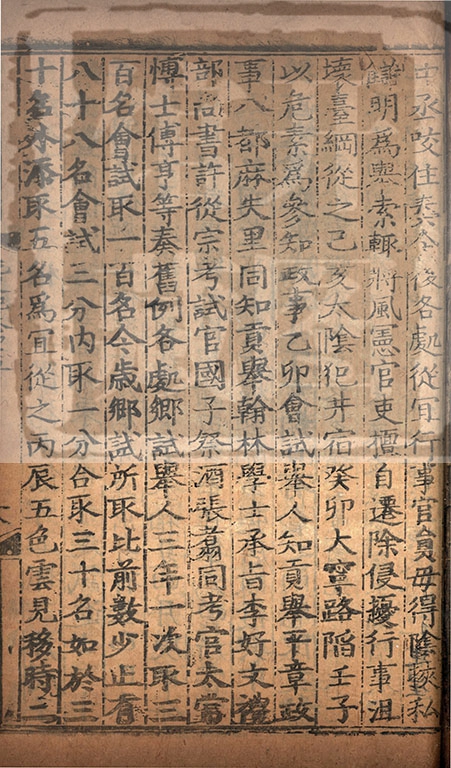 中丞咬住委今後各處從宜行事官員毋得陰挾私
讎明為𢍆索輒將風憲官吏擅自遷除侵擾行事沮
壞臺綱從之己亥太陰犯井宿癸卯大寧路陷壬子
以危素為參知政事乙卯會試舉人知貢舉平章政
事八都麻失里同知貢舉翰林學士承旨李好文禮
部尚書許從宗考試官國子祭酒張翥同考官太常
博士傅亨等奏舊例各處鄉試舉人三年一次取三
百名會試取一百名今歲鄉試所取比前數少止有
八十八名會試三分內取一分合取三十名如於三
十名外添取五名為宜從之丙辰五色雲見移時二